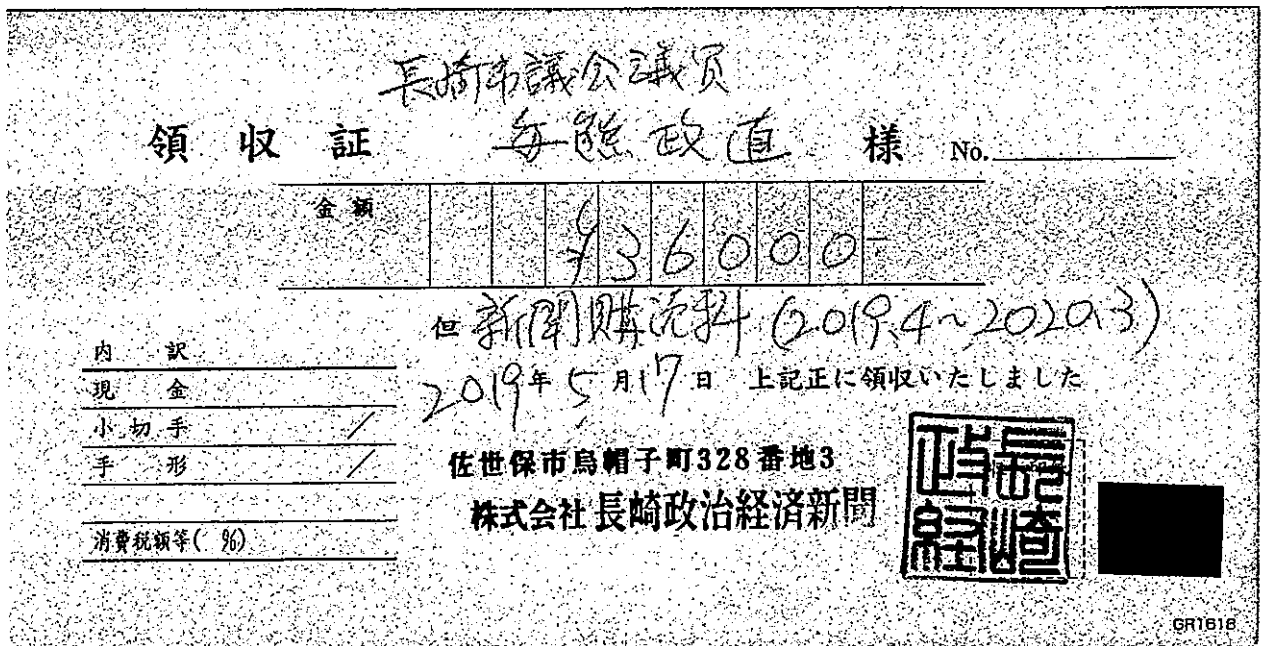 長崎市議会議員
領収証 毎熊政直 様 No.
金額 ¥36000-
但 新聞購読料 (2019.4~2020.3)
内訳
2019年5月17日 上記正に領収いたしました
現金
小切手 /
手形 /
佐世保市烏帽子町328番地3
株式会社 長崎政治経済新聞
消費税額等( %)
長崎政経
GR1616